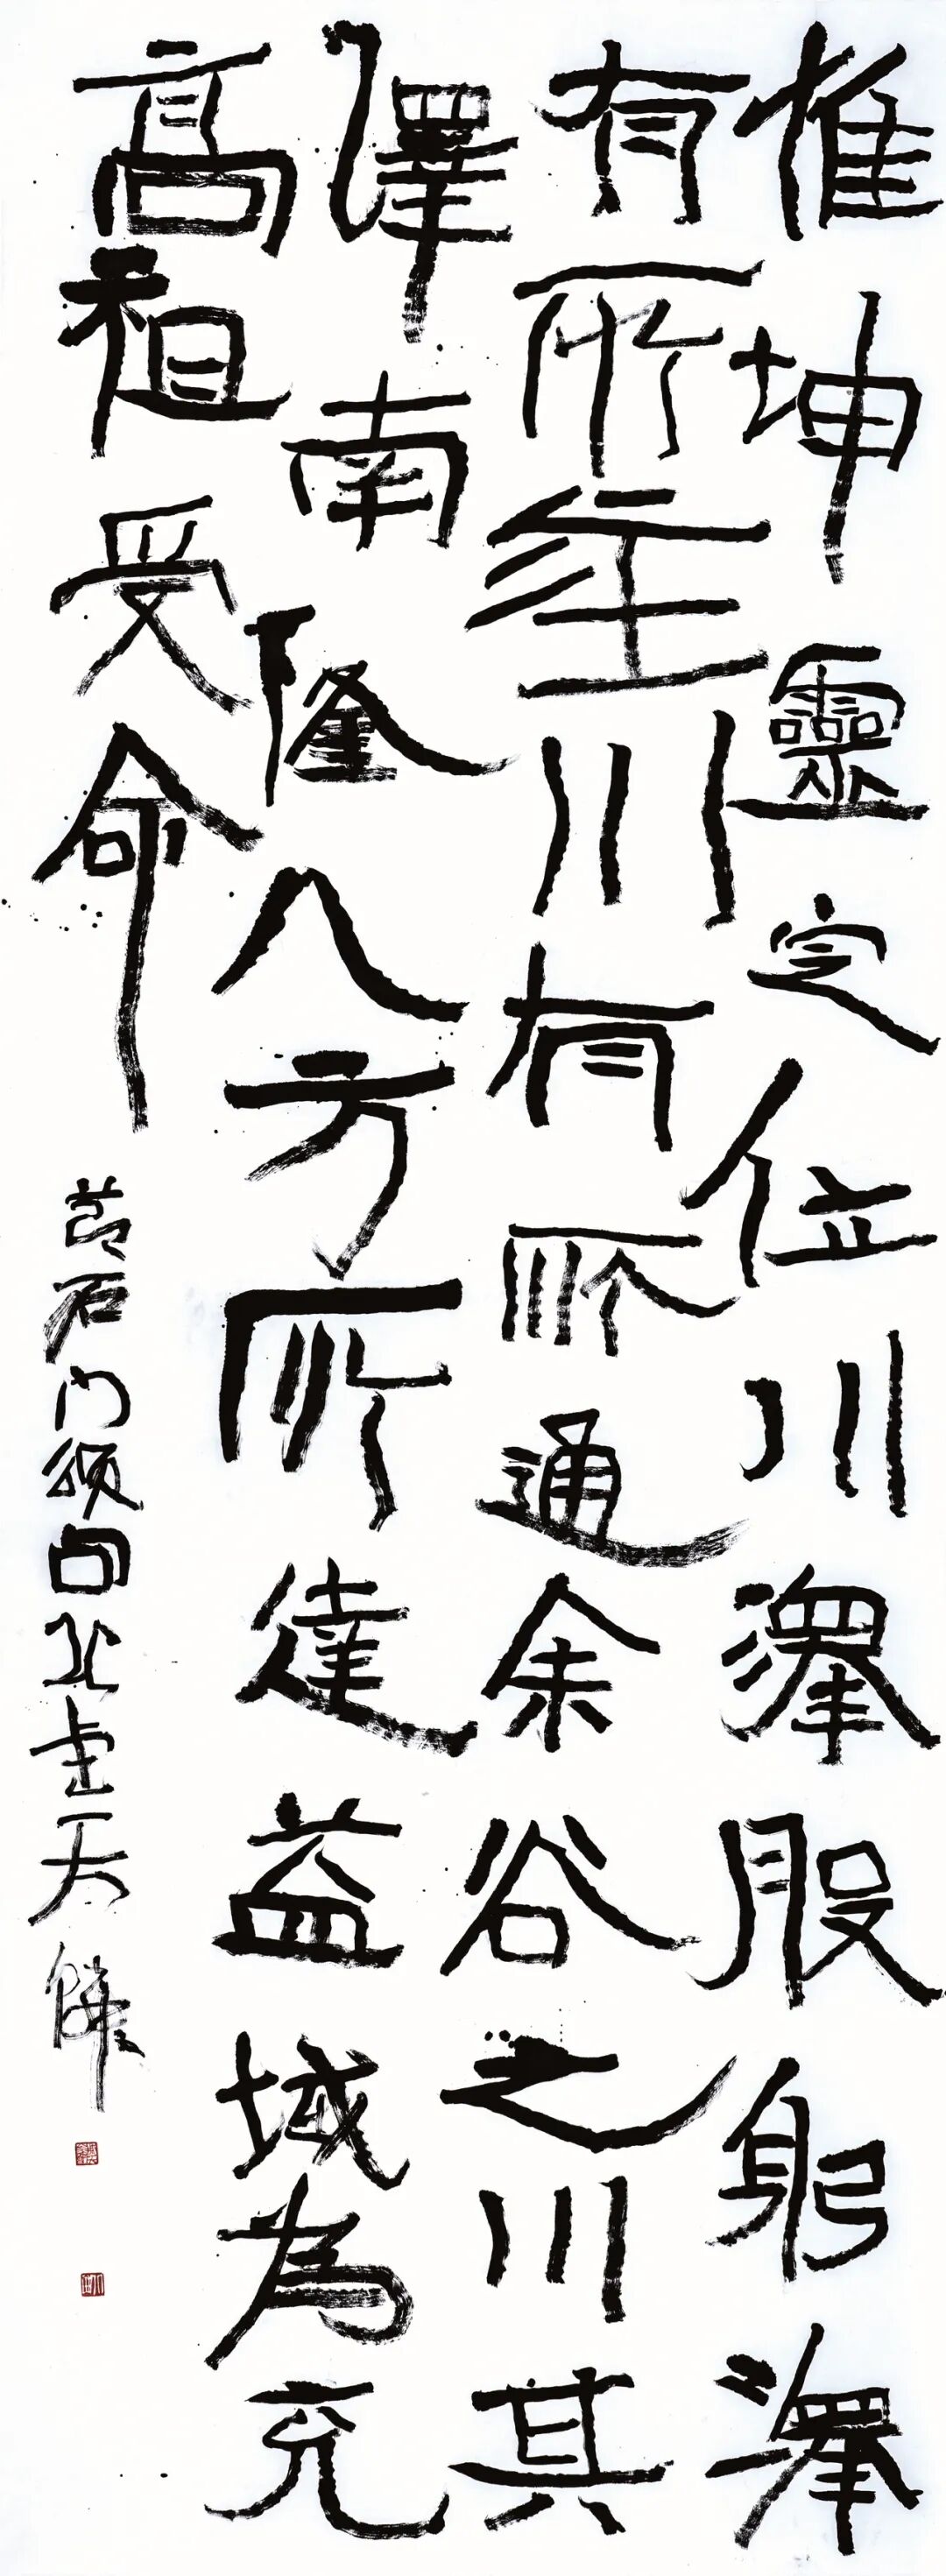 惟坤靈定位川澤股躬澤
有所注川有所通余谷之川其
澤南隆八方所達益域為充
高祖受命
節石门頌句北天麟